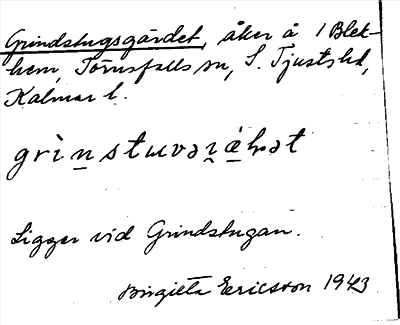 Grindstugsgärdet, åker å 1 Blek-
hem, Törnsfalls sn, S. Tjusts hd,
Kalmar l.
Ligger vid Grindstugan.
Birgitta Ericsson 1943